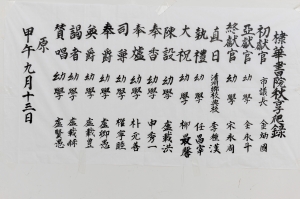 棣華書院秋享爬錄
初獻官 市議長 金幼國
亞獻官 幼學 金永平
終獻官 幼學 宋永周
直日 清州鄕校典校 李種漢
執禮 幼學 任昌宰
大祝 幼學 柳最馨
陳設 幼學 盧載洪
奉香 幼學 申秀一
奉爐 幼學 朴元善
司尊 幼學 權寧睦
奉爵 幼學 盧卿愚
奠爵 幼學 盧載豊
謁者 幼學 盧載
贊唱 幼學 盧賢愚
原
甲午九月十三日